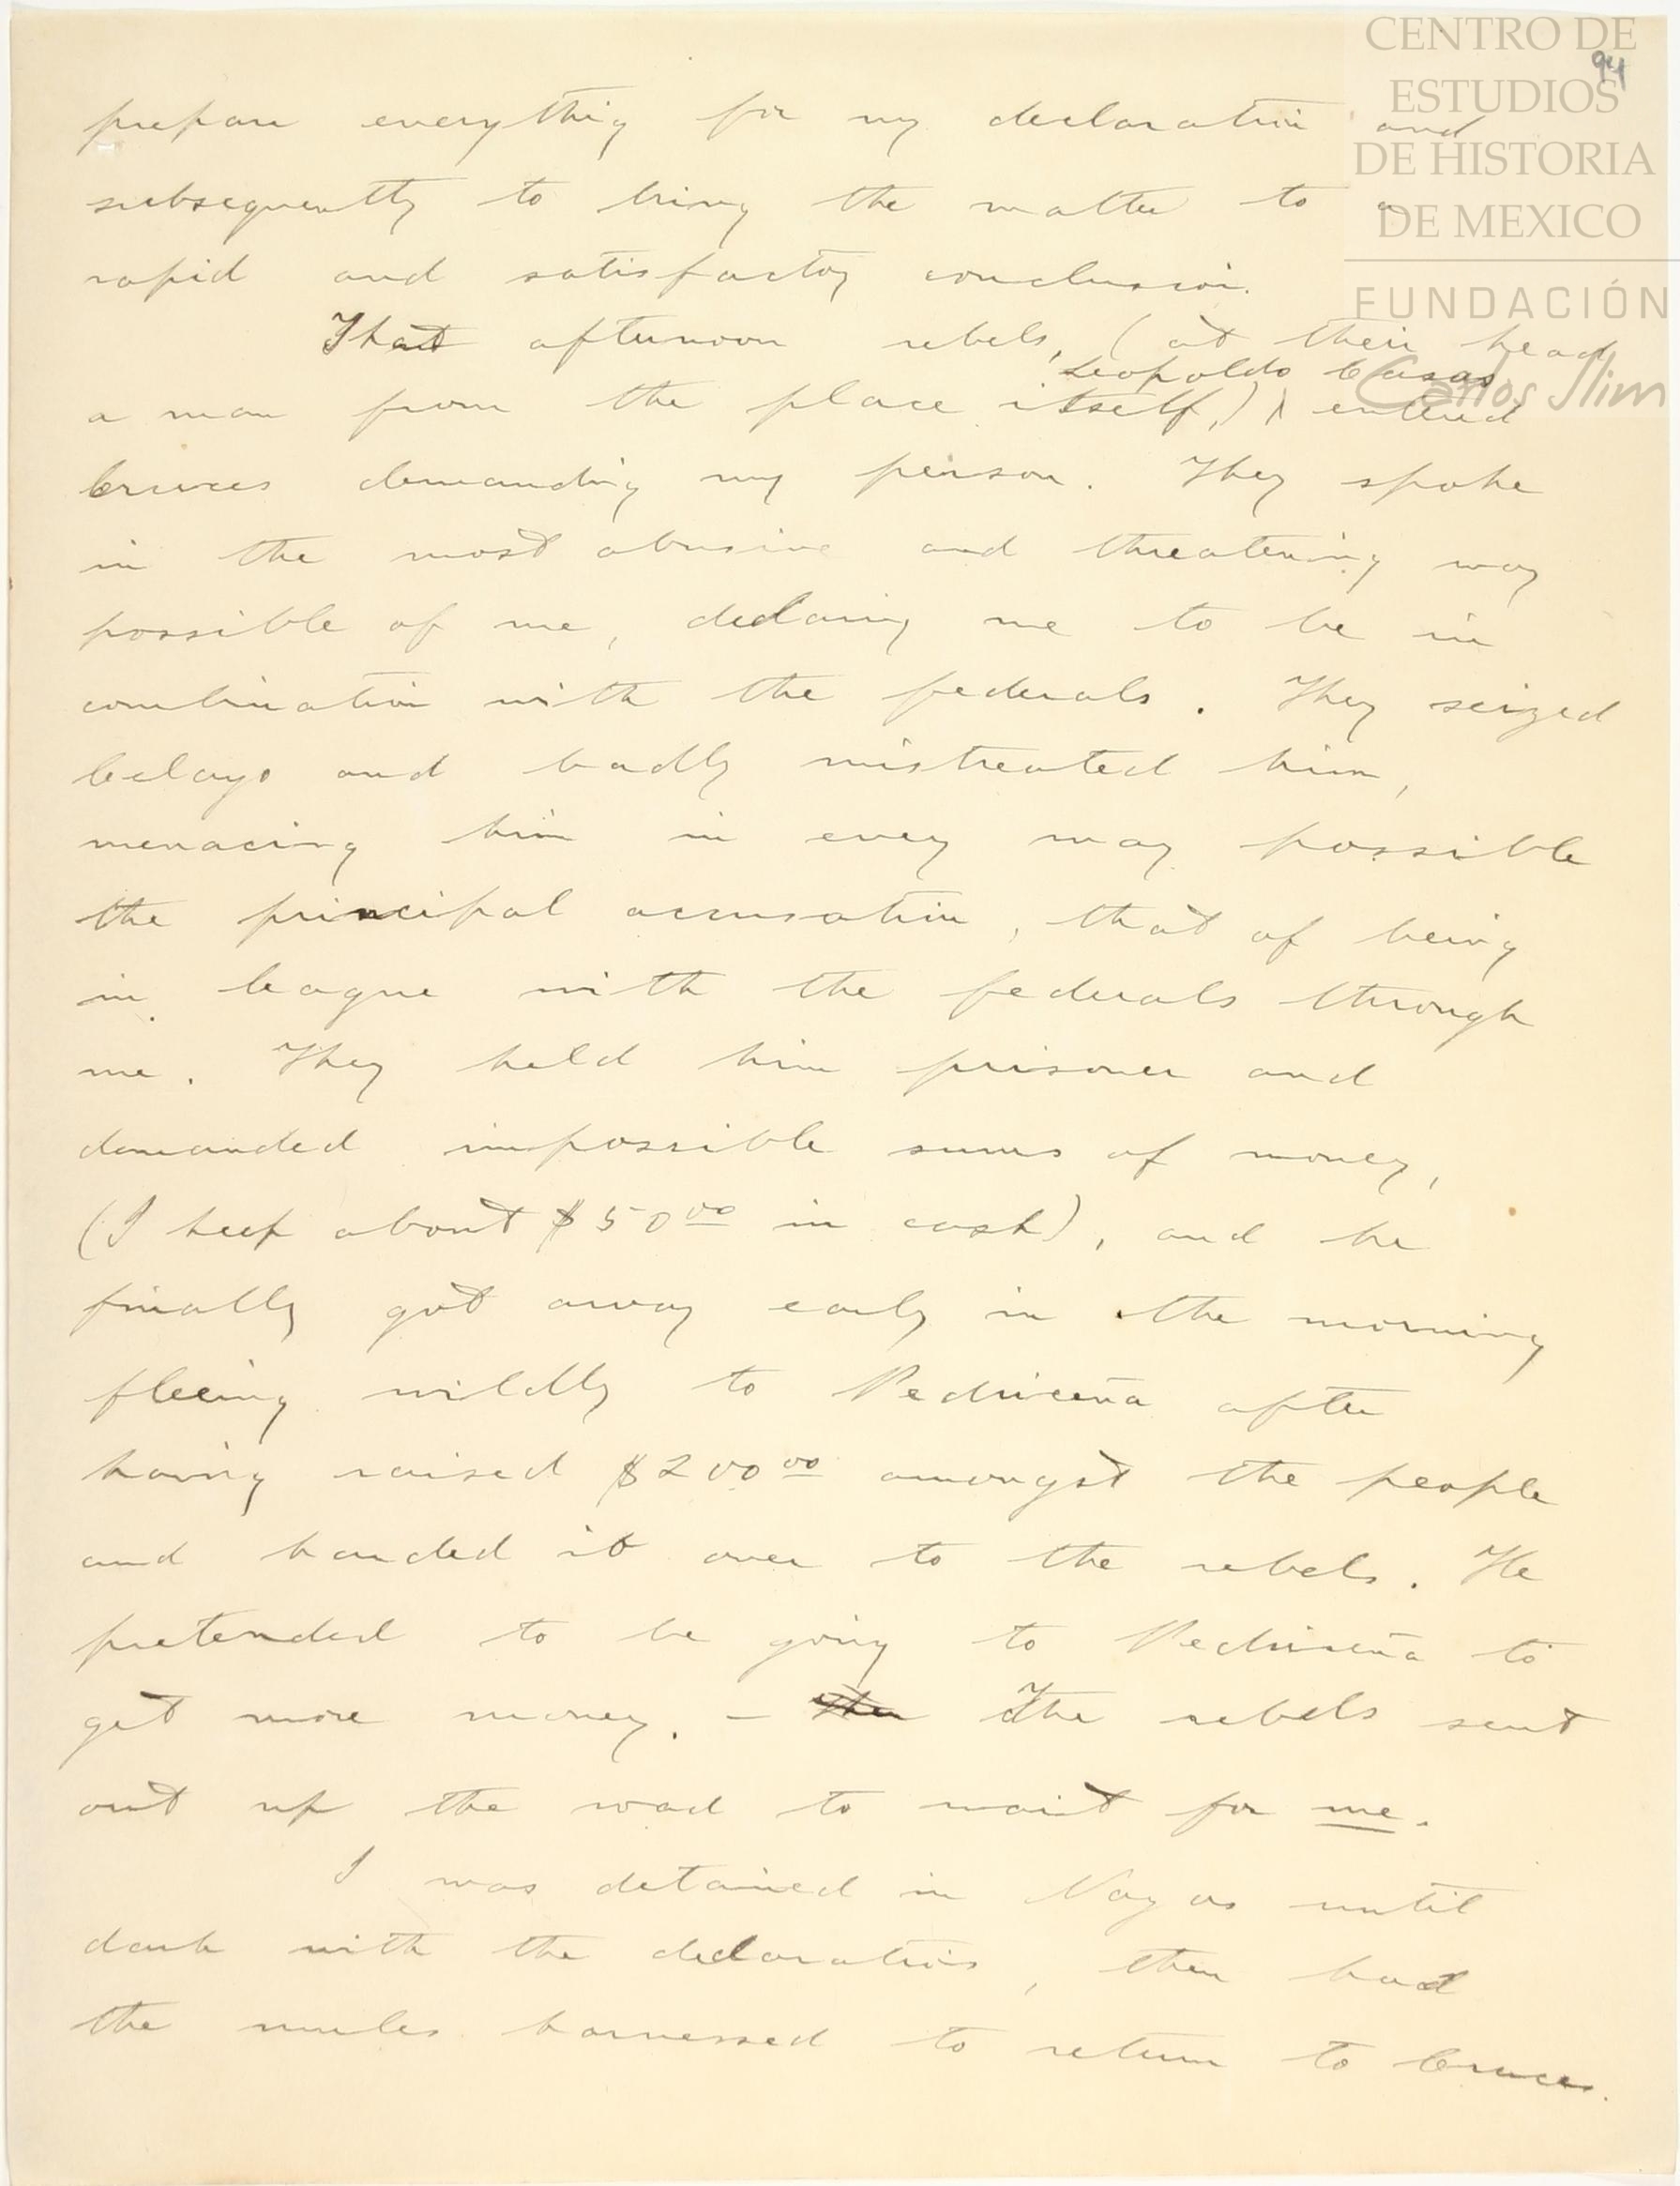 CENTRO DE
ESTUDIOS
DE HISTORIA
DE MEXICO
FUNDACIÓN
Carlos Slim
94
prepare everything for my declaration and
subsequently to bring the matter to a
rapid and satisfactory conclusion.
That afternoon rebels, (at their head
Leopoldo Casas
a man from the place itself,) entered
Cruces demanding my person. They spoke
in the most abusive and threatening way
possible of me, declaring me to be in
combination with the federals. They seized
Celayo and badly mistreated him,
menacing him in every way possible
the principal accusation, that of being
in league with the federals through
me. They held him prisoner and
demanded impossible sums of money,
(I keep about $50.00 in cash), and he
finally got away early in the morning
fleeing wildly to Pedriceña after
having raised $200.00 amongst the people
and handed it over to the rebels. He
pretended to be going to Pedriceña to
get more money. – The rebels sent
out up the road to wait for me.
I was detained in Nazas until
dark with the declaration, then had
the mules harnessed to return to Cruces.